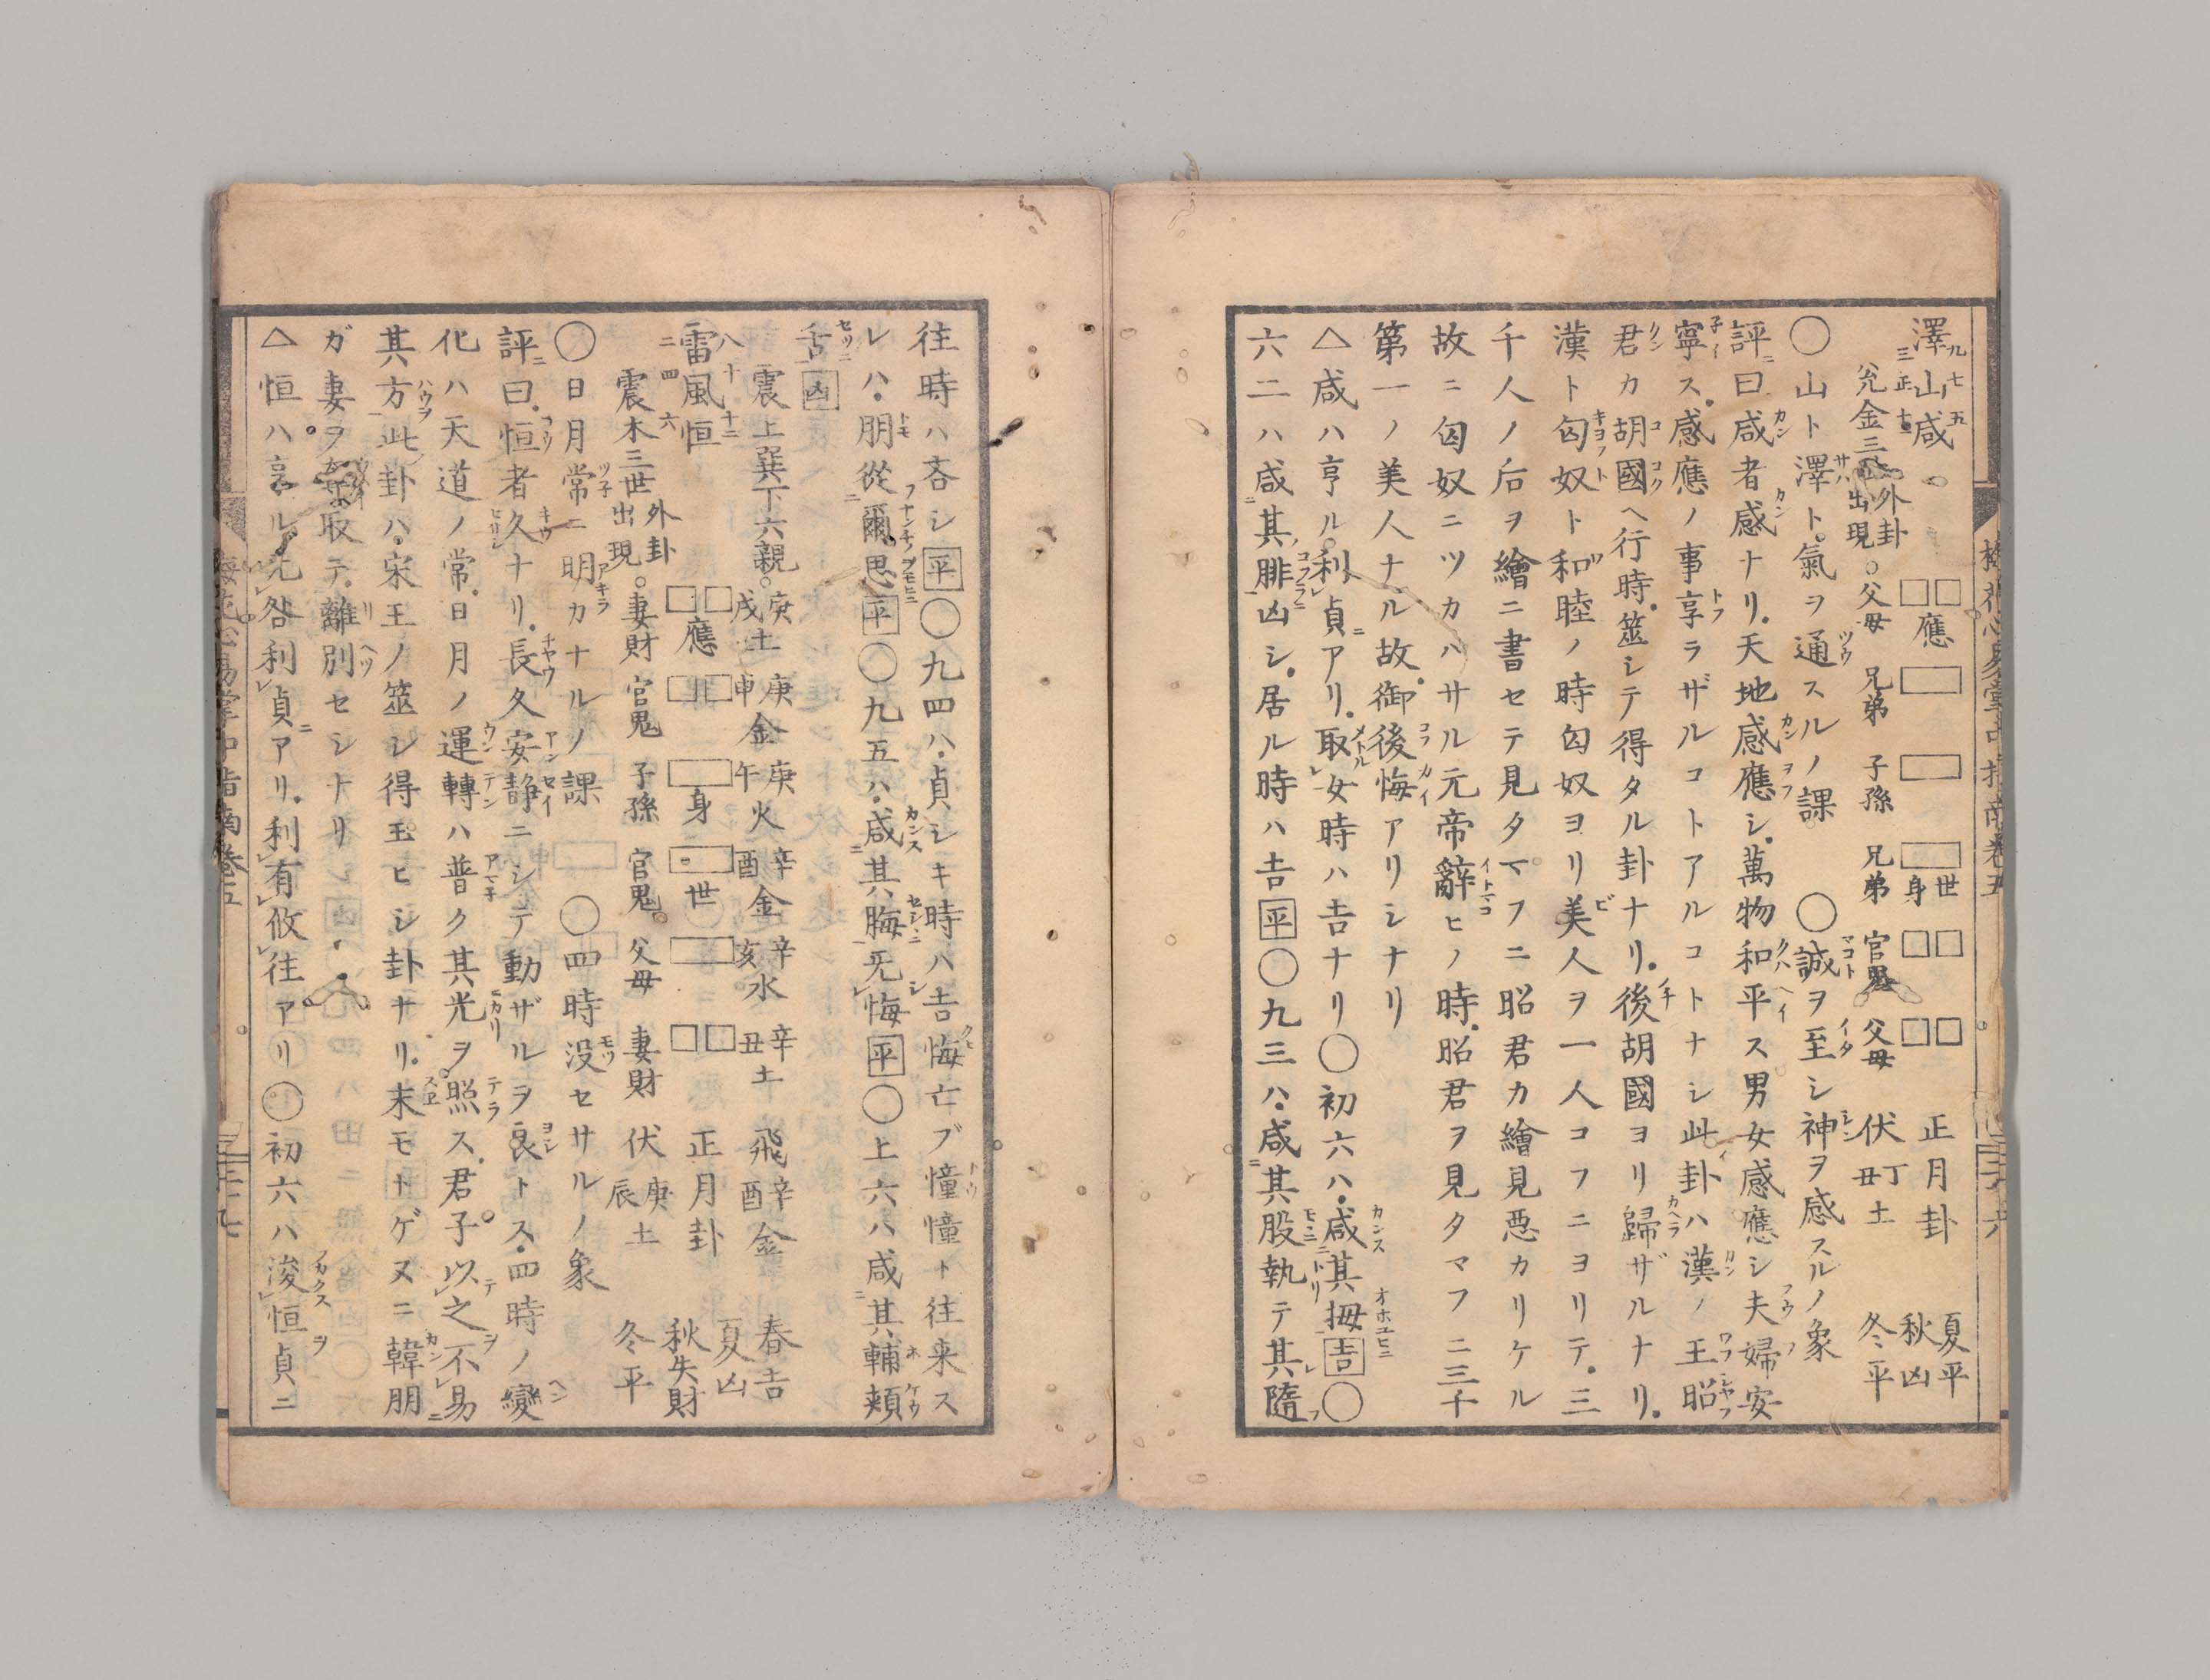 澤山咸 正月卦 夏平
兌金三世 外卦出現○父母 兄弟 應 子孫 兄弟 世身 官鬼 父母 伏丁丑土 秋凶 冬平
○山ト澤ト氣ヲ通スルノ課 ○誠ヲ至シ神ヲ感スルノ象
評曰咸者感ナリ天地感應シ萬物和平ス男女感應シ夫婦安
寧ス感應ノ事享ラザルコトアルコトナシ此卦ハ漢ノ王昭
君カ胡國ヘ行時筮シテ得タル卦ナリ後胡國ヨリ歸ザルナリ
漢ト匈奴ト和睦ノ時匈奴ヨリ美人ヲ一人コフニヨリテ三
千人ノ后ヲ繪ニ書セテ見タマフニ昭君カ繪見悪カリケル
故ニ匈奴ニツカハサル元帝辭ヒノ時昭君ヲ見タマフニ三千
第一ノ美人ナル故御後悔アリシナリ
△咸ハ亨ル利貞アリ取女時ハ吉ナリ○初六ハ咸其拇吉○
六二ハ咸其腓凶シ居ル時ハ吉平○九三ハ咸其股執テ其隨
往時ハ吝シ平○九四ハ貞シキ時ハ吉悔亡ブ憧憧ト往来ス
レハ朋從爾思平○九五ハ咸其脢无悔平○上六ハ咸其輔頬
舌凶
震上巽下六親○庚戌土 庚申金 庚午火 辛酉金 辛亥水 辛丑土 飛辛酉金 春吉
雷風恒 應 身 世 正月卦 夏凶 秋失財
震木三世 外卦出現○妻財 官鬼 子孫 官鬼 父母 妻財 伏庚辰土 冬平
○日月常ニ明カナルノ課 ○四時没セサルノ象
評曰恒者久ナリ長久安静ニシテ動ザルヲ良トス四時ノ變
化ハ天道ノ常日月ノ運轉ハ普ク其光ヲ照ス君子以之不易
其方此卦ハ宋王ノ筮シ得玉ヒシ卦ナリ末モトゲヌニ韓朋
ガ妻ヲ取テ離別セシナリ
△恒ハ享ル无咎利貞アリ利有攸往アリ○初六ハ浚恒貞ニ